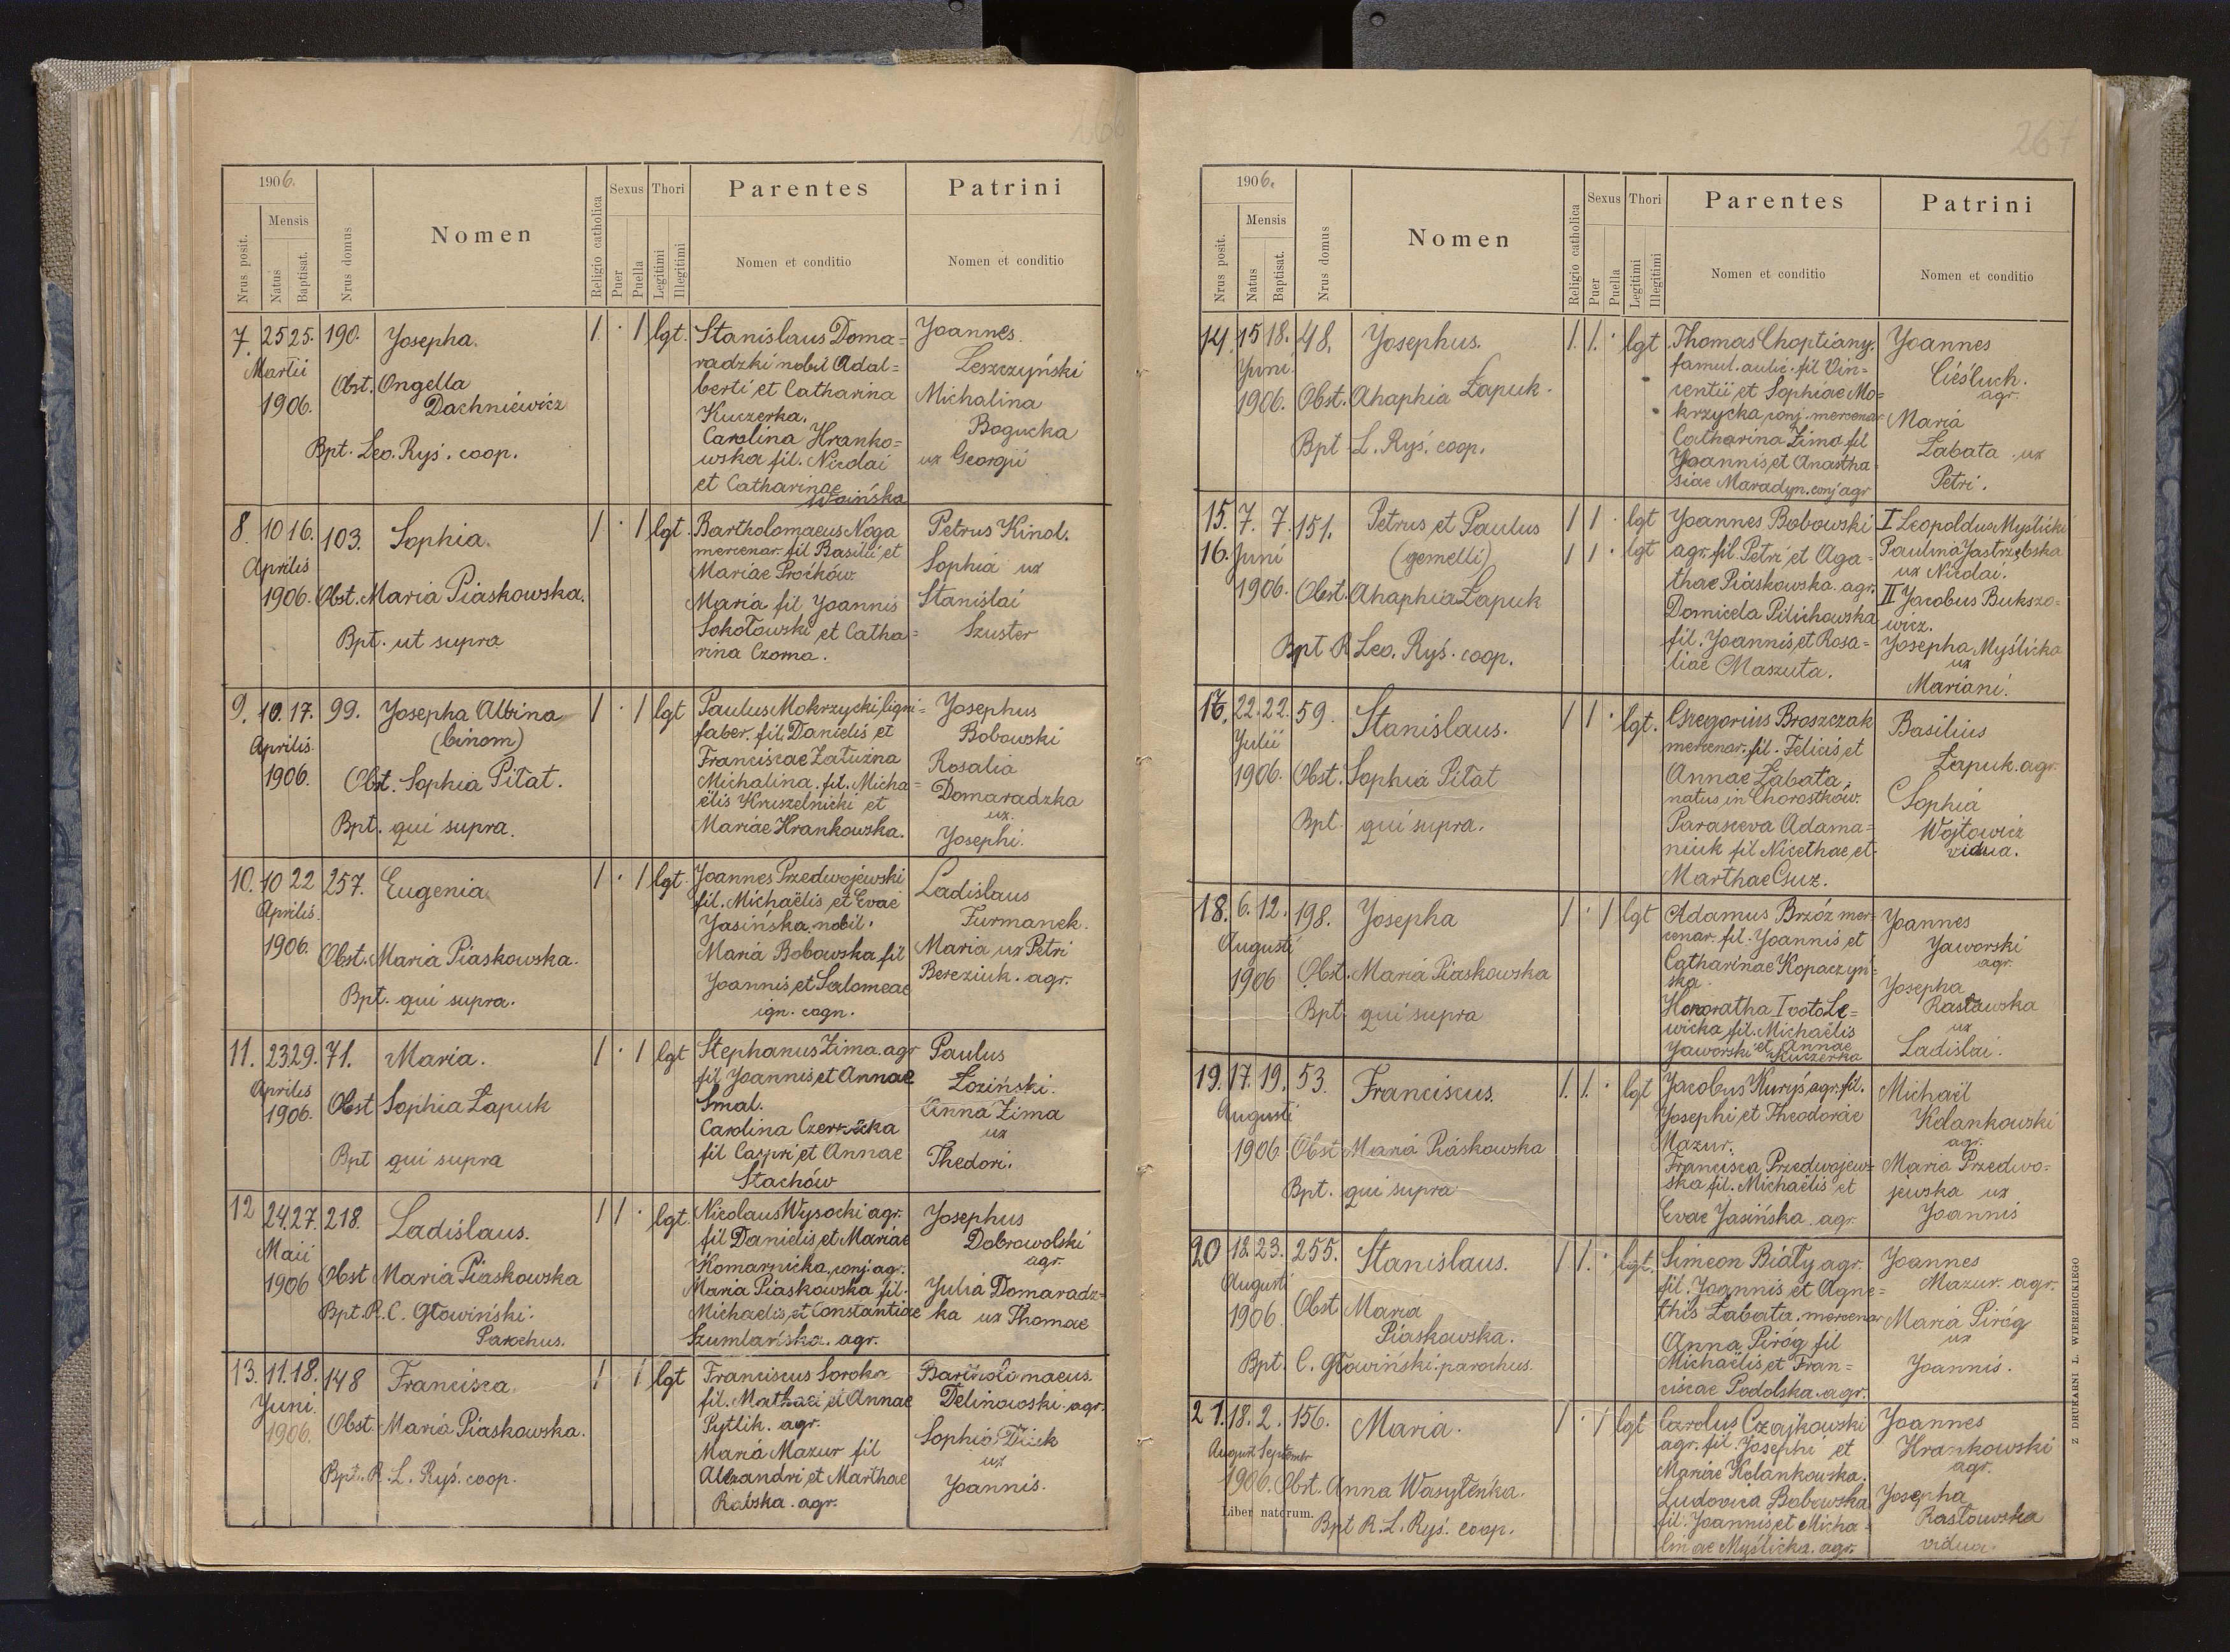 266
1906.
Nrus posit.
Mensis
Natus
Baptisat.
Nrus domus
Nomen
Religio catholica
Sexus
Puer
Puella
Thori
Legitimi
Illegitimi
Parentes
Nomen et conditio
Patrini
Nomen et conditio
7. 25 25. 190. Josepha. 1 · 1 lgt.
Martii
1906.
Obst. Angella
Dachniewicz
Bpt. Leo. Ryś. coop.
Stanislaus Doma=
radzki nobil Adal=
berti et Catharina
Kuczerka.
Carolina Hranko=
wska fil. Nicolai
et Catharinae
Woińska
Joannes
Leszczyński
Michalina
Bogucka
ux Georgii
8. 10 16. 103. Sophia. 1 · 1 lgt.
Aprilis
1906. Obst. Maria Piaskowska.
Bpt. ut supra
Bartholomaeus Noga
mercenar. fil Basilii et
Mariae Proćków.
Maria fil Joannis
Sokołowski et Catha=
rina Czoma.
Petrus Kinal.
Sophia ux
Stanislai
Szuster
9. 10. 17. 99. Josepha Albina 1 · 1 lgt
(binom)
Aprilis.
1906. Obst. Sophia Piłat.
Bpt. qui supra.
Paulus Mokrzycki, ligni=
faber. fil Danielis et
Franciscae Załużna
Michalina. fil. Micha=
ëlis Kruszelnicki et
Mariae Hrankowska.
Josephus
Bobowski
Rosalia
Domaradzka
ux.
Josephi.
10. 10 22 257. Eugenia. 1 · 1 lgt.
Aprilis.
1906. Obst. Maria Piaskowska.
Bpt. qui supra.
Joannes Przedwojewski
fil. Michaëlis et Evae
Jasińska. nobil.
Maria Bobowska fil
Joannis et Salomeae
ign. cogn.
Ladislaus
Furmanek.
Maria ux Petri
Bereziuk. agr.
11. 23 29. 71. Maria. 1 · 1 lgt
Aprilis
1906. Obst Sophia Łapuk
Bpt qui supra
Stephanus Zima. agr
fil Joannis et Annae
Smal.
Carolina
fil Caspri et Annae
Stachów
Paulus
Łoziński.
Anna Zima
ux
Thedori.
12 24. 27. 218. Ladislaus. 1 1 · lgt.
Maii
1906 Obst Maria Piaskowska
Bpt. R. C. Głowiński.
Parochus.
Nicolaus Wysocki agr.
fil Danielis et Mariae
Komarnicka, conj. agr.
Maria Piaskowska fil.
Michaelis, et Constantiae
Szumlańska. agr.
Josephus
Dobrowolski
agr.
Julia Domaradz=
ka ux Thomae
13. 11. 18. 148 Francisca. 1 1 lgt
Juni.
1906. Obst. Maria Piaskowska.
Bpt. R. L. Ryś. coop.
Franciscus Soroka
fil. Mathaei et Annae
Pytlik. agr.
Maria Mazur fil
Alexandri et Marthae
Rabska. agr.
Bartholomaeus.
Delinowski. agr.
Sophia
ux
Joannis.
267
1906.
Nrus posit.
Mensis
Natus
Baptisat.
Nrus domus
Nomen
Religio catholica
Sexus
Puer
Puella
Thori
Legitimi
Illegitimi
Parentes
Nomen et conditio
Patrini
Nomen et conditio
14. 15 18. 48. Josephus. 1. 1. · lgt
Juni.
1906. Obst. Ahaphia Łapuk.
Bpt L. Ryś. coop.
Thomas Choptiany.
famul. aulic. fil Vin=
centii et Sophiae Mo=
krzycka, conj. mercenar
Catharina Zima fil
Joannis et Anastha=
siae Maradyn. conj agr
Joannes
Cieśluch.
agr.
Maria
Łabata. ux
Petri.
15. 7. 7. 151. Petrus et Paulus 1 1 · lgt
16. Juni (gemelli) 1 1 · lgt
1906. Obst. Ahaphia Łapuk
Bpt R Leo. Ryś. coop.
Joannes Bobowski
agr. fil. Petri et Aga=
thae Piaskowska. agr.
Domicela Pilichowska
fil. Joannis et Rosa=
liae Maszuta.
I Leopoldus Myślicki
Paulina Jastrzębska
ux Nicolai.
II Jacobus Bukszo=
wicz.
Josepha Myślicka
ux
Mariani.
17. 22. 22. 59. Stanislaus. 1 1 · lgt.
Julii
1906. Obst. Sophia Piłat
Bpt. qui supra.
Gregorius Broszczak
mercenar. fil. Felicis et
Annae Łabata,
natus in Chorostków.
Parasceva Adama=
niuk fil Nicethae et
Marthae Guz.
Basilius
Łapuk. agr.
Sophia
Wojtowicz
vidua.
18. 6. 12. 198. Josepha 1 · 1 lgt
Augusti
1906 Obst. Maria Piaskowska
Bpt qui supra
Adamus Brzóz mer=
cenar. fil. Joannis et
Catharinae Kopaczyń=
ska.
Honoratha I voto Le=
wicka, fil. Michaëlis
Jaworski et Annae
Kuczerka
Joannes
Jaworski
agr.
Josepha
Rasławska
ux
Ladislai.
19. 17. 19. 53. Franciscus. 1. 1. · lgt
Augusti
1906 Obst Maria Piaskowska
Bpt. qui supra
Jacobus Kuryś agr. fil.
Josephi et Theodorae
Mazur.
Francisca Przedwojew=
ska fil. Michaëlis et
Evae Jasińska. agr.
Michaël
Kolankowski
agr.
Maria Przedwo=
jewska ux
Joannis
20 18. 23. 255. Stanislaus. 1. 1. · lgt.
Augusti
1906 Obst Maria
Piaskowska.
Bpt. C. Głowiński. parochus.
Simeon Biały agr.
fil. Joannis et Agne=
this Łabata. mercenar
Anna Piróg fil
Michaëlis et Fran=
ciscae Podolska. agr.
Joannes
Mazur. agr.
Maria Piróg
ux
Joannis.
21. 18. 2. 156. Maria. 1 · 1 lgt
August. Septembr
1906. Obst. Anna Wasyleńka.
Liber natorum.
Bpt R. L. Ryś. coop.
Carolus Czajkowski
agr. fil. Josephi et
Mariae Kolankowska.
Ludovica Bobowska
fil. Joannis et Micha=
linae Myślicka. agr.
Joannes
Hrankowski
agr.
Josepha
Rasławska
vidua.
Z DRUKARNI L. WIERZBICKIEGO